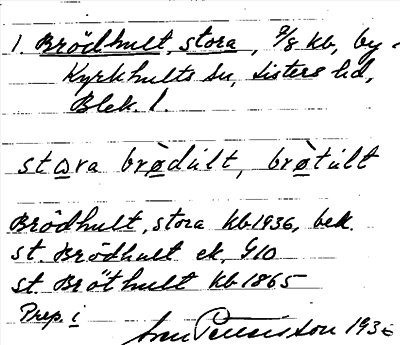 1. Brödhult, stora, 9/8 kb, by
Kyrkhults sn, Listers hd,
Blek. l.
stora brødult, brøtult
Brödhult, stora kb 1936, bek.
st. Brödhult ek, G10
st. Bröthult kb 1865
Prep. i
1936